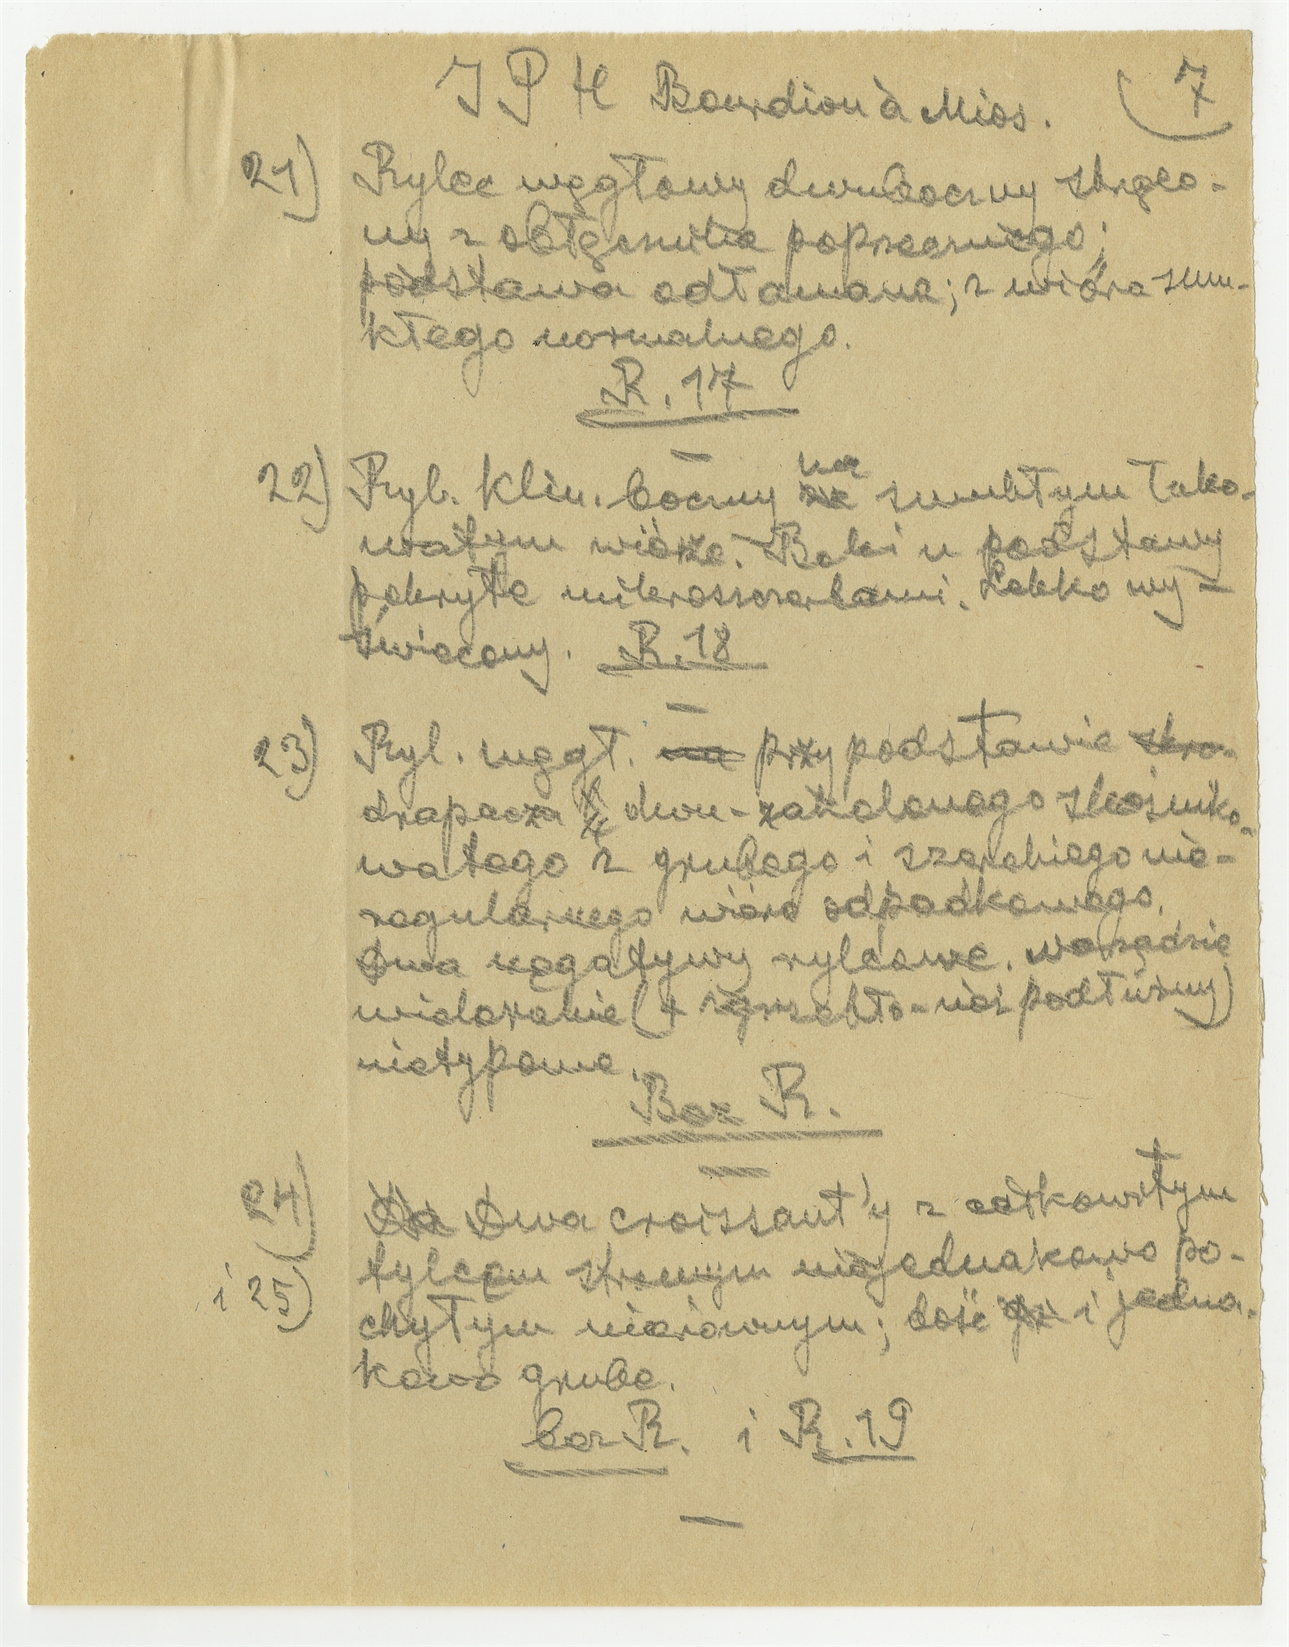 I P H Bourdiou à Mios. 7
21) Rylec węgłowy dwuboczny skręco-
ny z obłęcznika poprzecznego;
podstawa odłamana; z wióra smu-
kłego normalnego.
R. 17
22) Ryl. klin. boczny na smukłym łuko-
watym wiórze. Boki u podstawy
pokryte mikrossczerbami. Lekko wy-
świecony. R. 18
23) Ryl. węgł. przy podstawie skro-
drapacza dwu-zakolanego skośniko-
watego z grubego i szerokiego nie-
regularnego wióra odpadkowego.
Dwa negatywy rylcowe. Narzędzie
wielorakie (+ zgrzebło-nóż podłużny)
nietypowe.
Bez R.
24) Dwa croissant'y z całkowitym
i 25) tylcem stromym niejednakowo po-
chyłym nierównym; dość i jedna-
kowo grube.
bez R. i R. 19